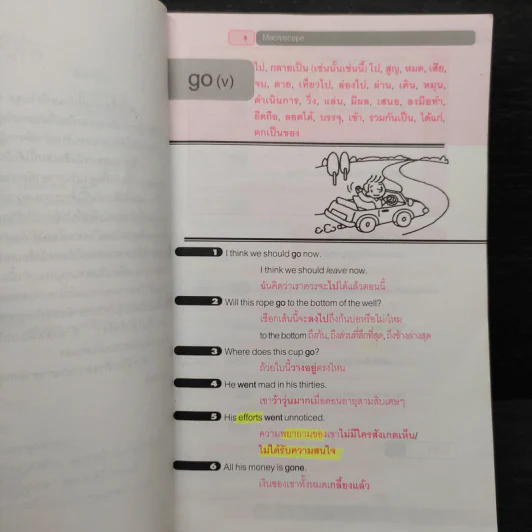 Macroscope
go (v)
ไป, กลายเป็น (เช่นนั้นเช่นนี้) ไป, สูญ, หมด, เสีย,
จน, ตาย, เที่ยวไป, ล่องไป, ผ่าน, เดิน, หมุน,
ดำเนินการ, วิ่ง, แล่น, มีผล, เสนอ, ลงมือทำ,
ยึดถือ, ลอดได้, บรรจุ, เข้า, รวมกันเป็น, ได้แก่,
ตกเป็นของ
1 I think we should go now.
I think we should leave now.
ฉันคิดว่าเราควรจะไปได้แล้วตอนนี้
2 Will this rope go to the bottom of the well?
เชือกเส้นนี้จะลงไปถึงก้นบ่อหรือไม่/ไหม
to the bottom ถึงก้น, ถึงส่วนที่ลึกที่สุด, ถึงข้างล่างสุด
3 Where does this cup go?
ถ้วยใบนี้วางอยู่ตรงไหน
4 He went mad in his thirties.
เขาว้าวุ่นมากเมื่อตอนอายุสามสิบเศษๆ
5 His efforts went unnoticed.
ความพยายามของเขาไม่มีใครสังเกตเห็น/
ไม่ได้รับความสนใจ
6 All his money is gone.
เงินของเขาทั้งหมดเกลี้ยงแล้ว